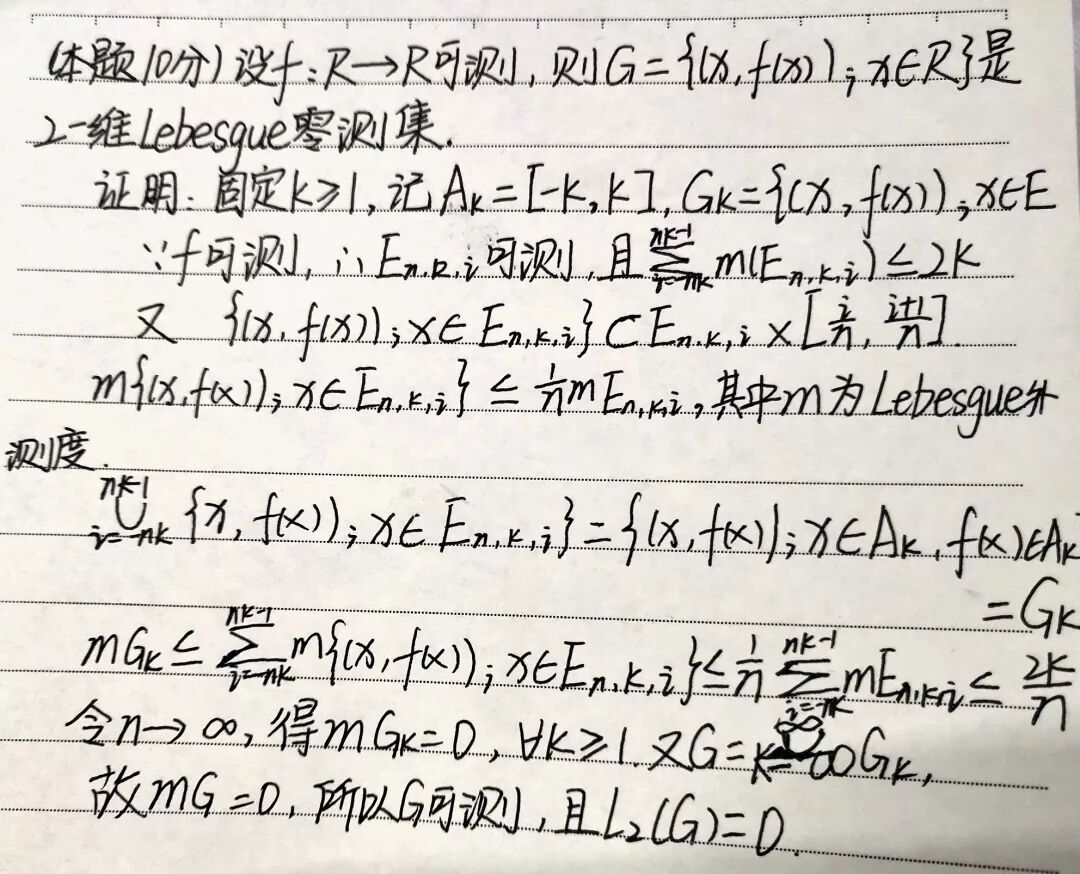 (本题10分)设f:R→R可测,则G={(x,f(x));x∈R}是
2-维Lebesgue零测集.
证明:固定k≥1,记A_k=[-k,k],G_k={(x,f(x));x∈E
∵f可测,∴E_{n,k,i}可测,且∑_{i=-nk}^{nk-1}m(E_{n,k,i})≤2k
又 {(x,f(x));x∈E_{n,k,i}}⊂E_{n,k,i}×[i/n,(i+1)/n].
m{(x,f(x));x∈E_{n,k,i}}≤1/n mE_{n,k,i},其中m为Lebesgue外
测度.
∪_{i=-nk}^{nk-1}{x,f(x));x∈E_{n,k,i}}={(x,f(x));x∈A_k,f(x)∈A_k
=G_k
mG_k≤∑_{i=-nk}^{nk-1}m{(x,f(x));x∈E_{n,k,i}}≤1/n ∑_{i=-nk}^{nk-1}mE_{n,k,i}≤2k/n
令n→∞,得mG_k=0,∀k≥1.又G=∪G_k,
故mG=0,所以G可测,且L_2(G)=0.